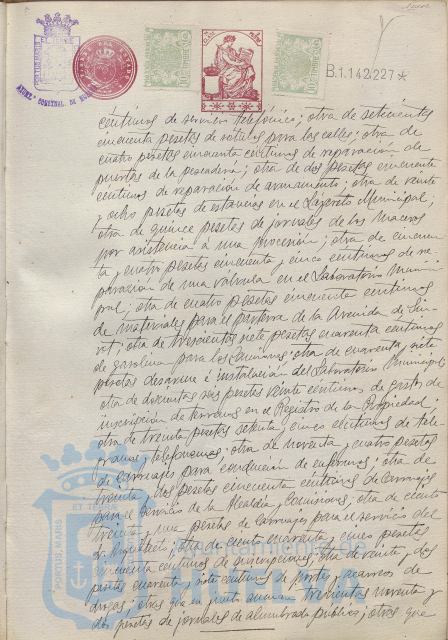 B.1.142.227*
céntimos de servicio telefónico; otra de setecientas
cincuenta pesetas de rótulos para las calles; otra de
cuatro pesetas cincuenta céntimos de reparación de
puertas de la pescadería; otra de dos pesetas cincuenta
céntimos de reparación de armamento; otra de veinte
y ocho pesetas de estancias en el Depósito Municipal;
otra de quince pesetas de jornales de los maceros
por asistencia a una procesión; otra de cincuen
ta y cuatro pesetas cincuenta y cinco céntimos de re
paración de una válvula en el Laboratorio Munici
pal; otra de cuatro pesetas cincuenta céntimos
de materiales para el parterre de la Avenida de
otra de trescientas siete pesetas cuarenta céntimos
de gasolina para los camiones; otra de cuarenta y siete
pesetas desarme é instalación del Laboratorio Municipal
otra de doscientas seis pesetas veinte céntimos de gastos de
inscripción de terrenos en el Registro de la Propiedad;
otra de treinta pesetas setenta y cinco céntimos de tele
gramas y telefonemas; otra de noventa y cuatro pesetas
de carruajes para conducción de enfermos; otra de
treinta y dos pesetas cincuenta céntimos de carruajes
para el servicio de la Alcaldía y Comisiones; otra de ciento
treinta y una pesetas de carruajes para el servicio del
Arquitecto; otra de ciento cuarenta y cinco pesetas
cincuenta céntimos de suscripciones; otra de veinte y dos
pesetas cuarenta y siete céntimos de portes y acarreos de
drogas; otras que en junto suman trescientas noventa y
dos pesetas de jornales de alumbrado público; otras que
PORTUS MARIS
ET TERRÆ
Ayuntamiento de
HUELVA